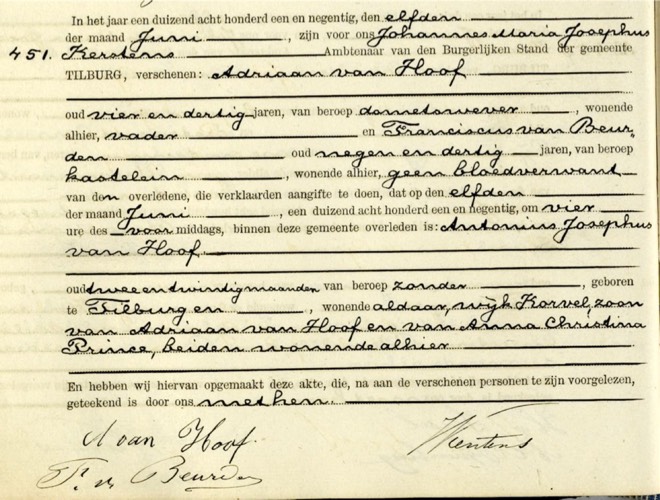 In het jaar een duizend acht honderd een en negentig, den elfden
der maand Juni, zijn voor ons Johannes Maria Josephus
451. Kerstens Ambtenaar van den Burgerlijken Stand der gemeente
TILBURG, verschenen: Adriaan van Hoof
oud vier en dertig jaren, van beroep dometswever, wonende
alhier, vader en Franciscus van Beur-
den oud negen en dertig jaren, van beroep
kastelein, wonende alhier, geen bloedverwant
van den overledene, die verklaarden aangifte te doen, dat op den elfden
der maand Juni, een duizend acht honderd een en negentig, om vier
ure des voor middags, binnen deze gemeente overleden is: Antonius Josephus
van Hoof
oud twee en twindig maanden van beroep zonder, geboren
te Tilburg en, wonende aldaar, wijk Korvel, zoon
van Adriaan van Hoof en van Anna Christina
Prince, beiden wonende alhier
En hebben wij hiervan opgemaakt deze akte, die, na aan de verschenen personen te zijn voorgelezen,
geteekend is door ons met hen.
A van Hoof
F. v. Beurden